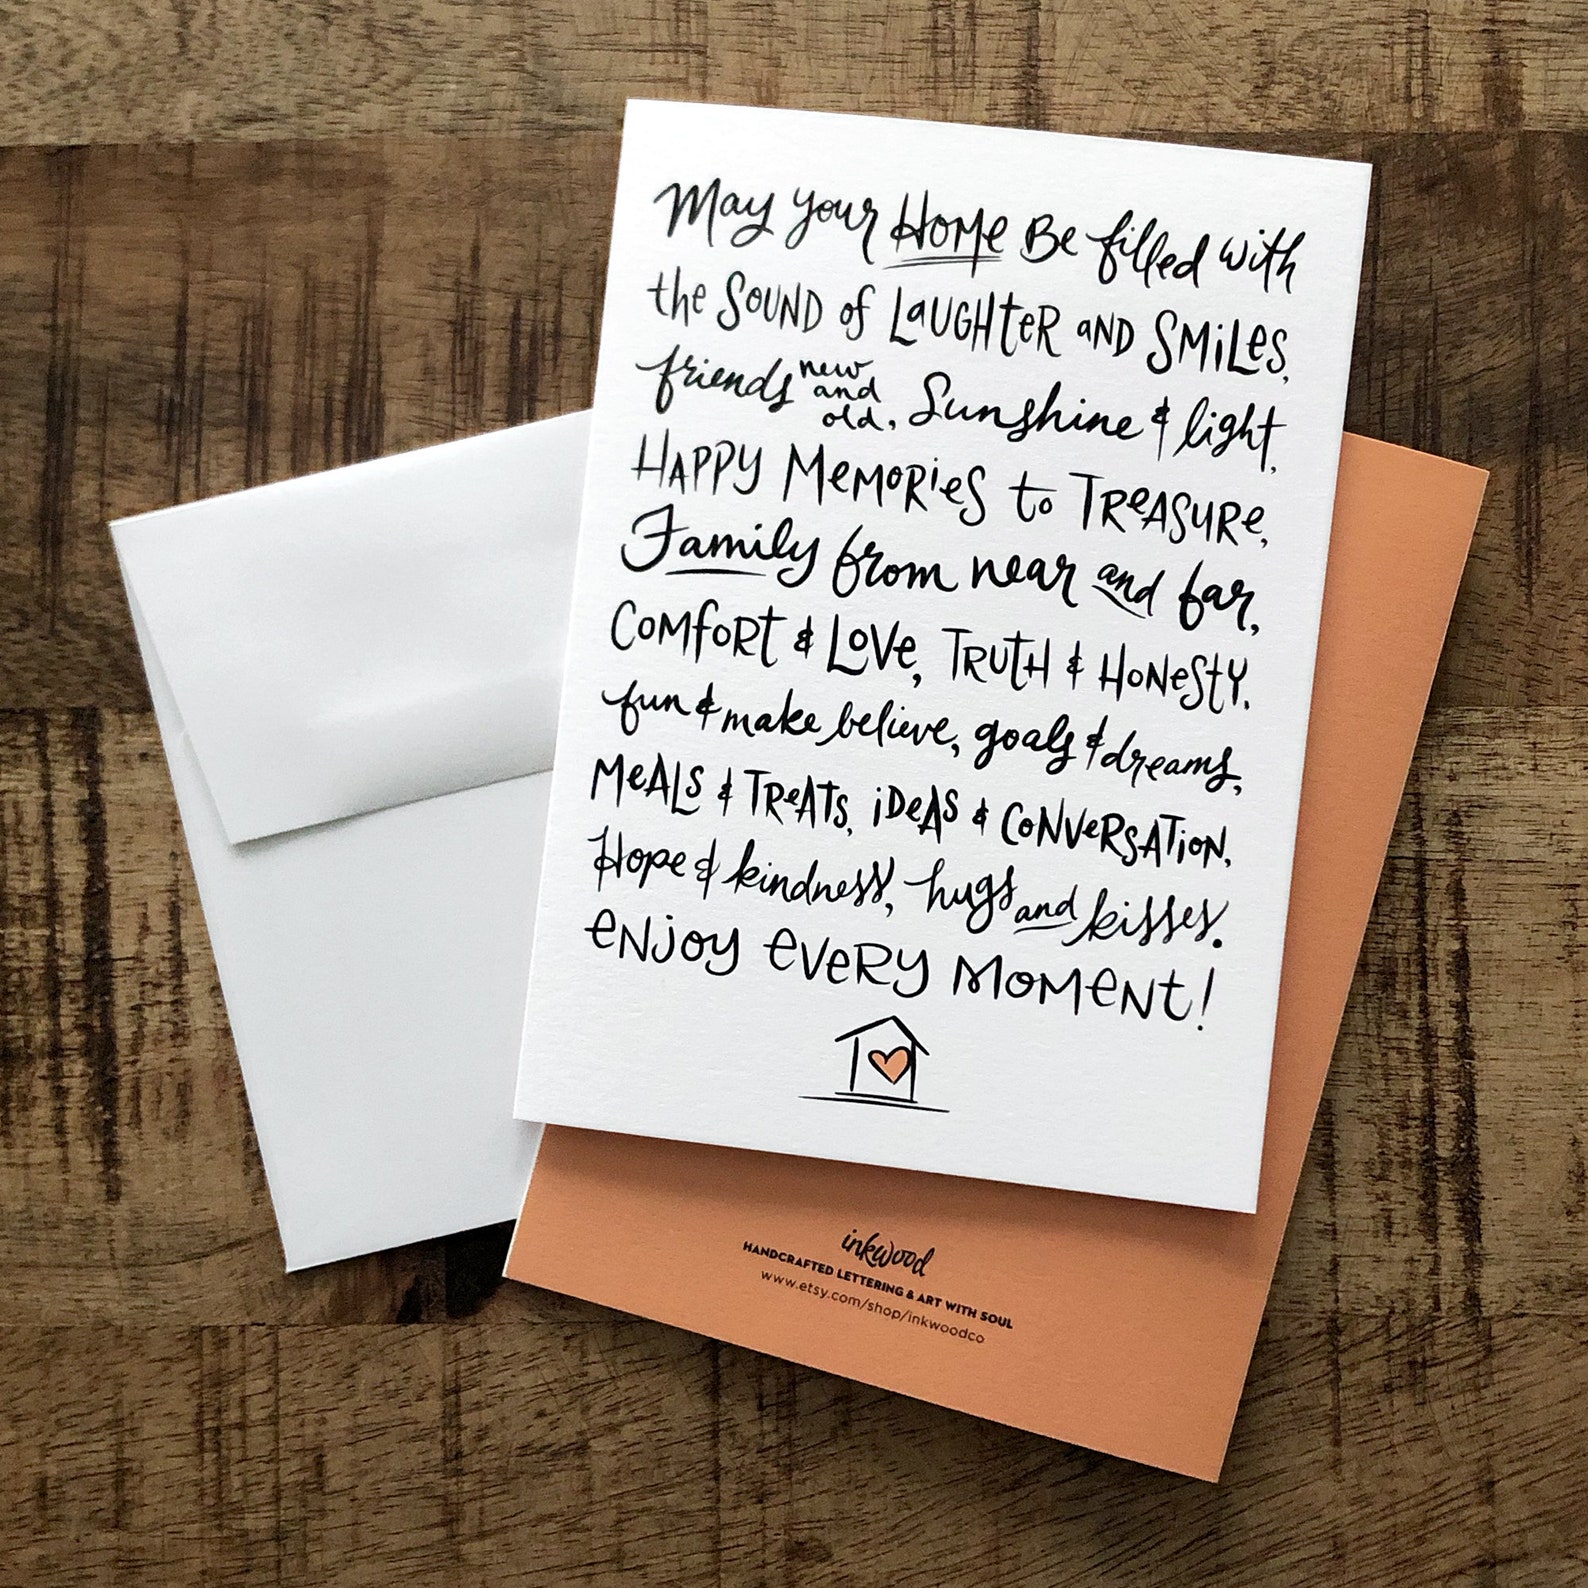 May your Home Be filled with
the SOUND of LAUGHTER AND SMiLES,
friends new and old, Sunshine & light,
HAPPY MEMORiES to TREASURE,
Family from near and far,
COMFORT & LOVE, TRUTH & HONESTY,
fun & make believe, goals & dreams,
MEALS & TREATS, iDEAS & CONVERSATiON,
Hope & kindness, hugs and kisses.
ENJOY EVERY MOMENT!
inkwood
HANDCRAFTED LETTERING & ART WITH SOUL
www.etsy.com/shop/inkwoodco